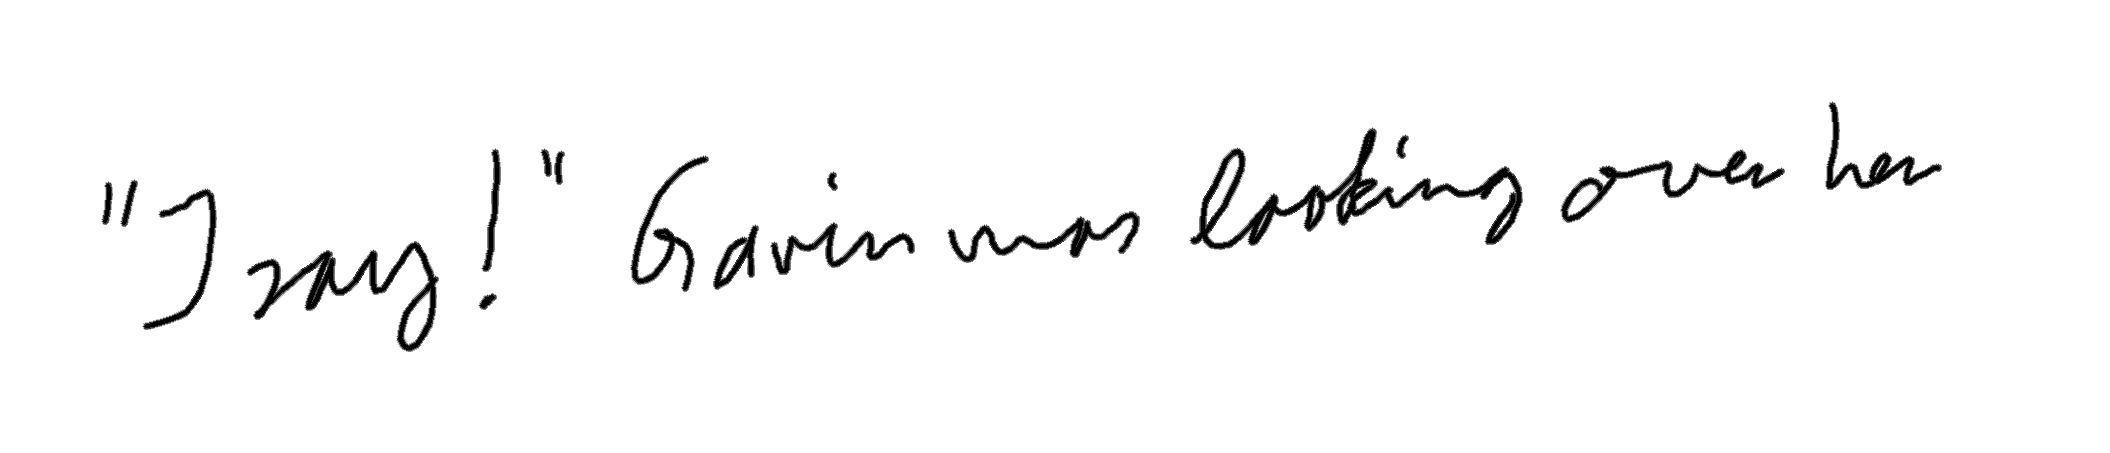 "I say!" Gavin was looking over her